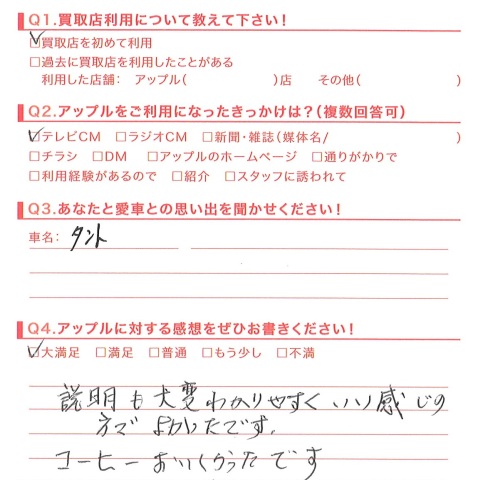 Q1.買取店利用について教えて下さい！
☑買取店を初めて利用
□過去に買取店を利用したことがある
利用した店舗： アップル（ ）店 その他（ ）
Q2.アップルをご利用になったきっかけは？（複数回答可）
☑テレビCM □ラジオCM □新聞・雑誌（媒体名/ ）
□チラシ □DM □アップルのホームページ □通りがかりで
□利用経験があるので □紹介 □スタッフに誘われて
Q3.あなたと愛車との思い出を聞かせください！
車名： タント
Q4.アップルに対する感想をぜひお書きください！
☑大満足 □満足 □普通 □もう少し □不満
説明も大変わかりやすくいい感じの
方でよかったです。
コーヒーおいしかったです